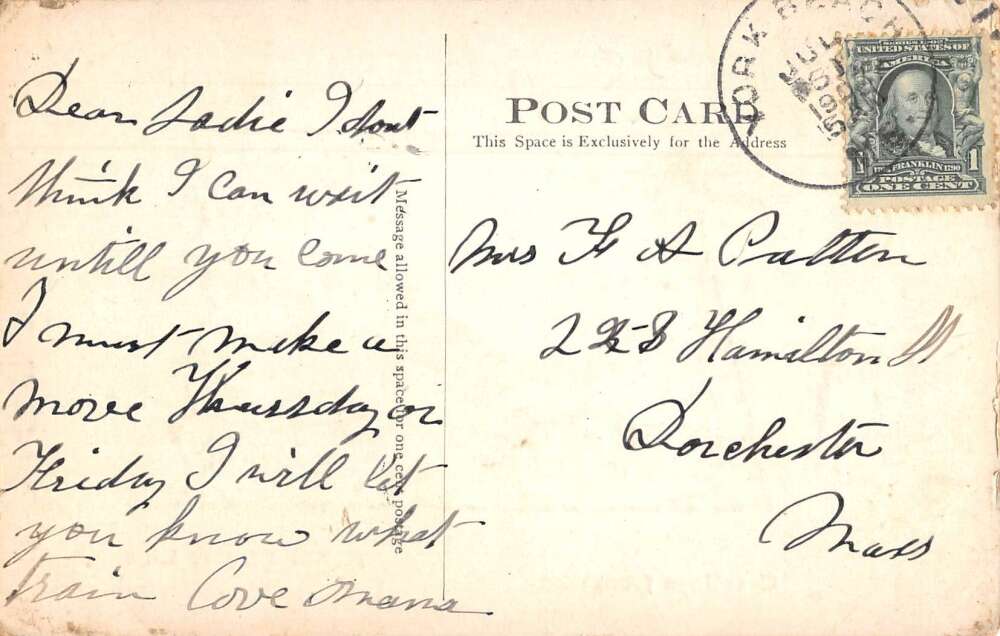 Dear Sadie I dont
think I can wait
untill you come
I must make a
move Thursday or
Friday I will let
you know what
train Love Mama
POST CARD
This Space is Exclusively for the Address
Message allowed in this space for one cent postage
YORK BEACH
JUL
SERIES 1902
UNITED STATES OF
AMERICA
1 1
FRANKLIN 1790
POSTAGE
ONE CENT
Mrs F A Patten
Hamilton St
Dorchester
Mass